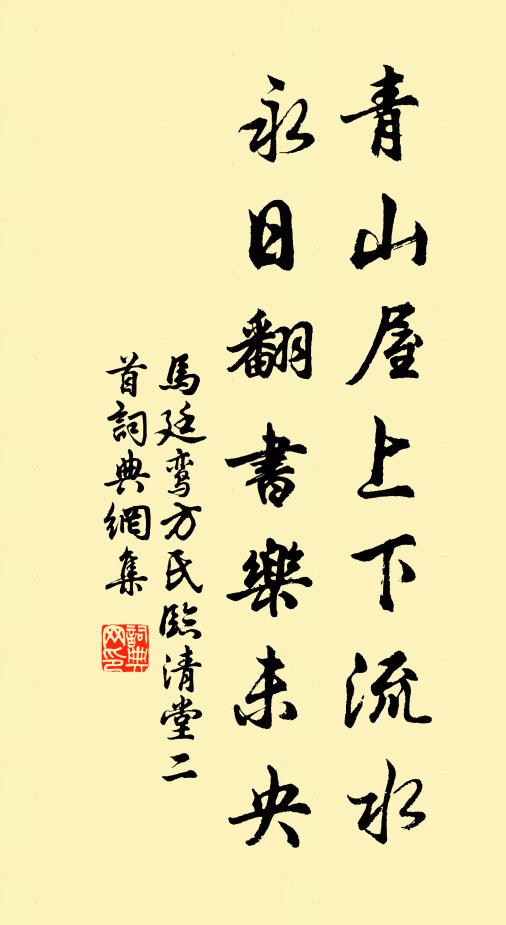 青山屋上下流水
永日翻書樂未央
馬廷鸞方氏臨清堂二
首詞典網集
詞典網印